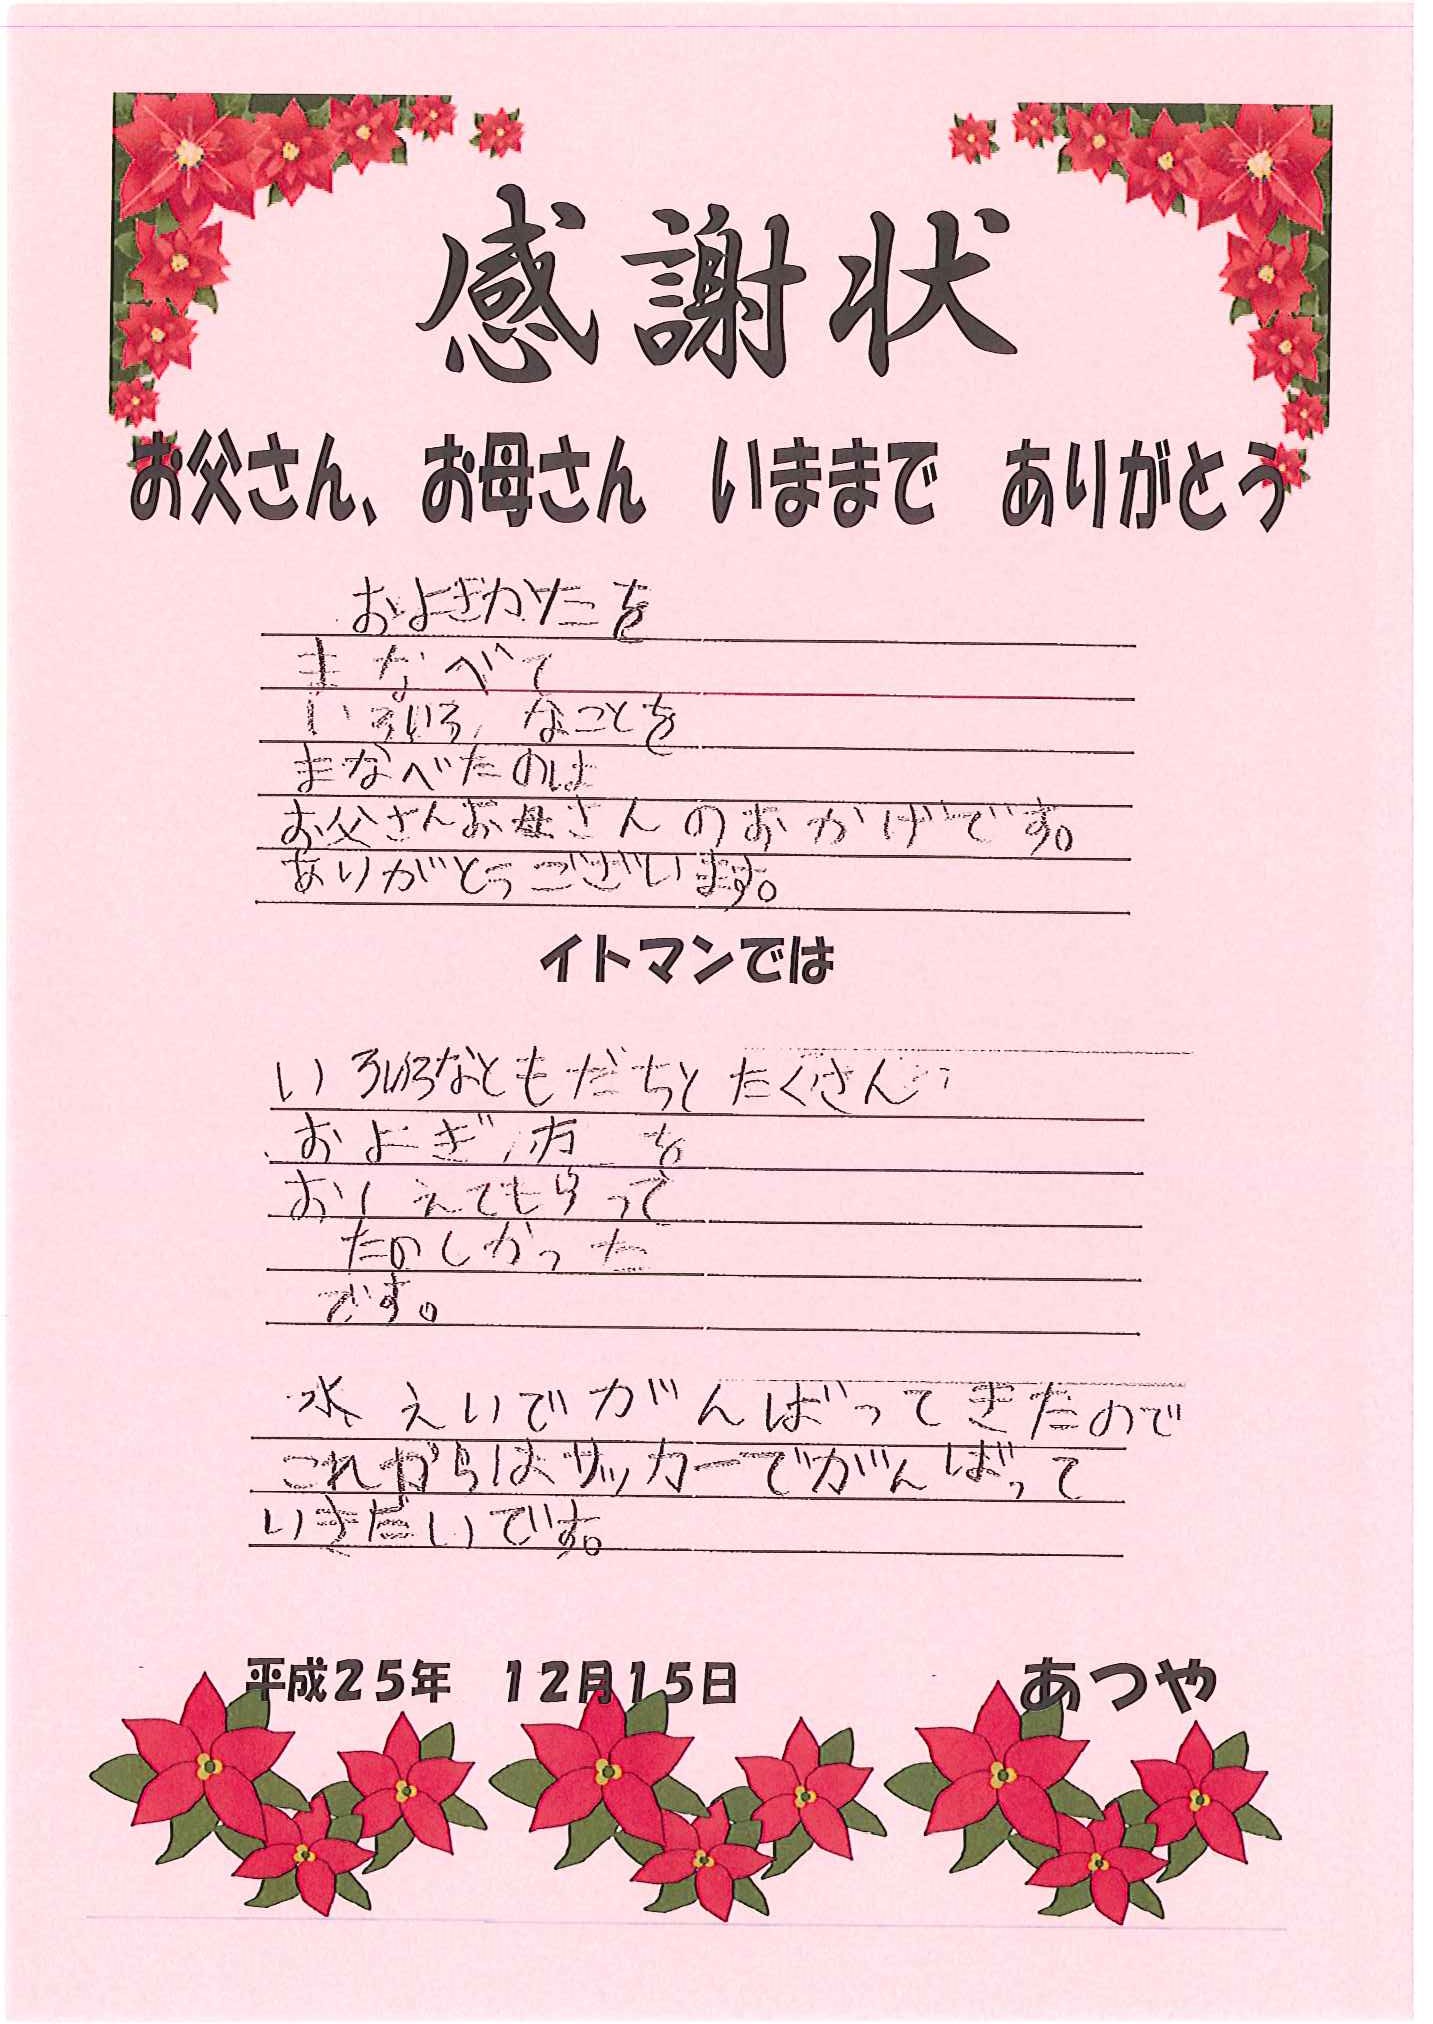 感謝状
お父さん、お母さん いままで ありがとう
およぎかたを
まなべて
いろいろなことを
まなべたのは
お父さんお母さんのおかげです。
ありがとうございます。
イトマンでは
いろいろなともだちとたくさん
およぎ方を
おしえてもらって
たのしかった
です。
水えいでがんばってきたので
これからはサッカーでがんばって
いきたいです。
平成25年 12月15日 あつや